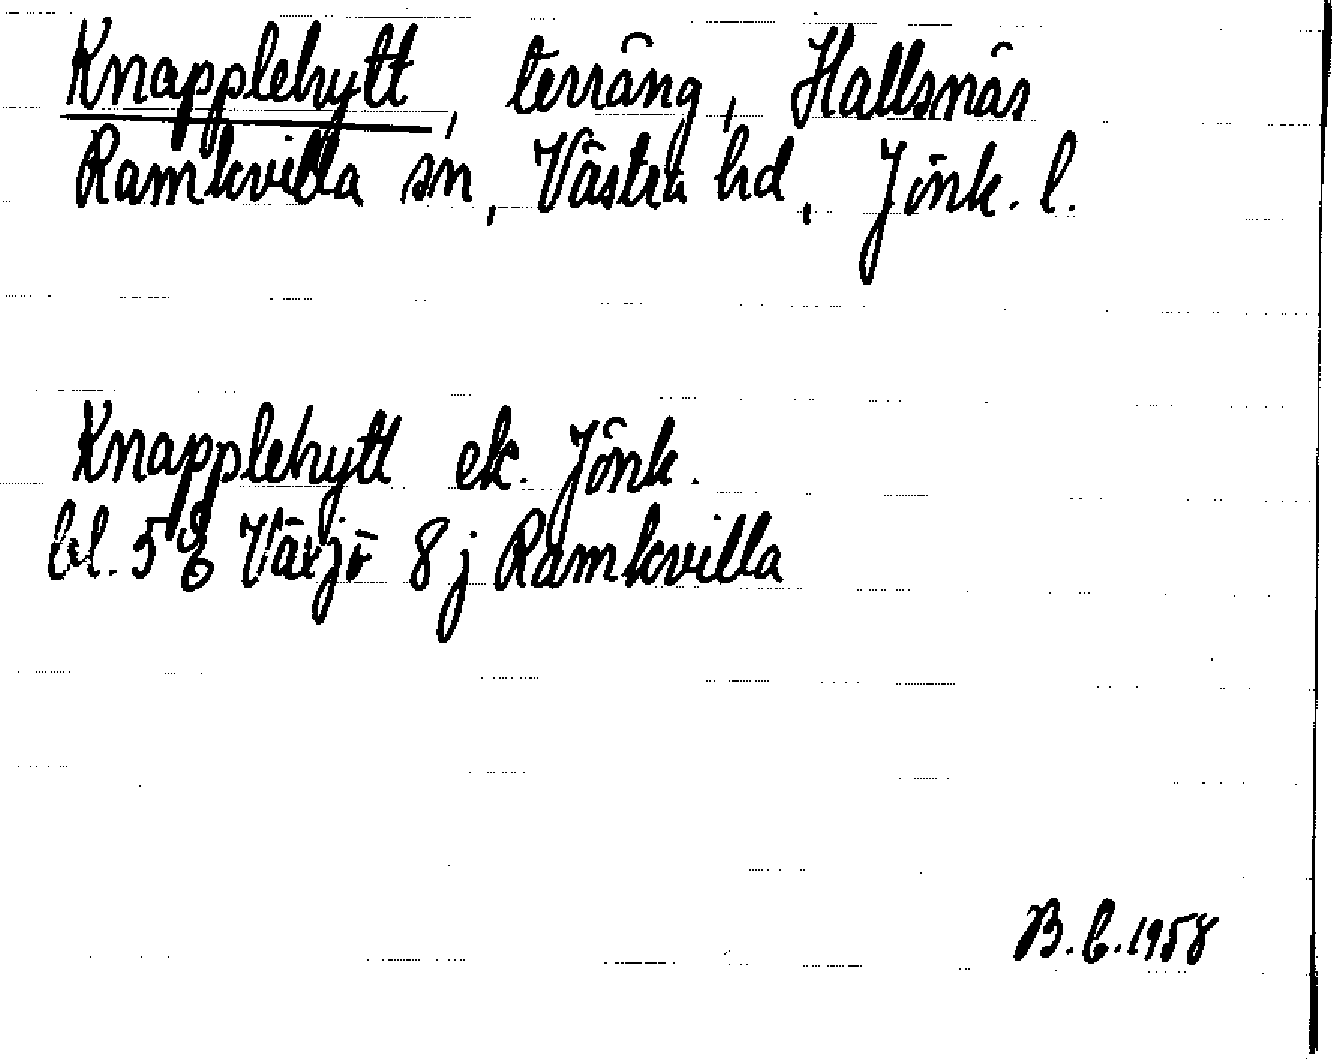 Knapplehytt, terräng, Hallsnäs
Ramkvilla sn, Västra hd, Jönk. l.
Knapplehytt ek. Jönk.
bl. 58 Växjö 8j Ramkvilla
B.C. 1958